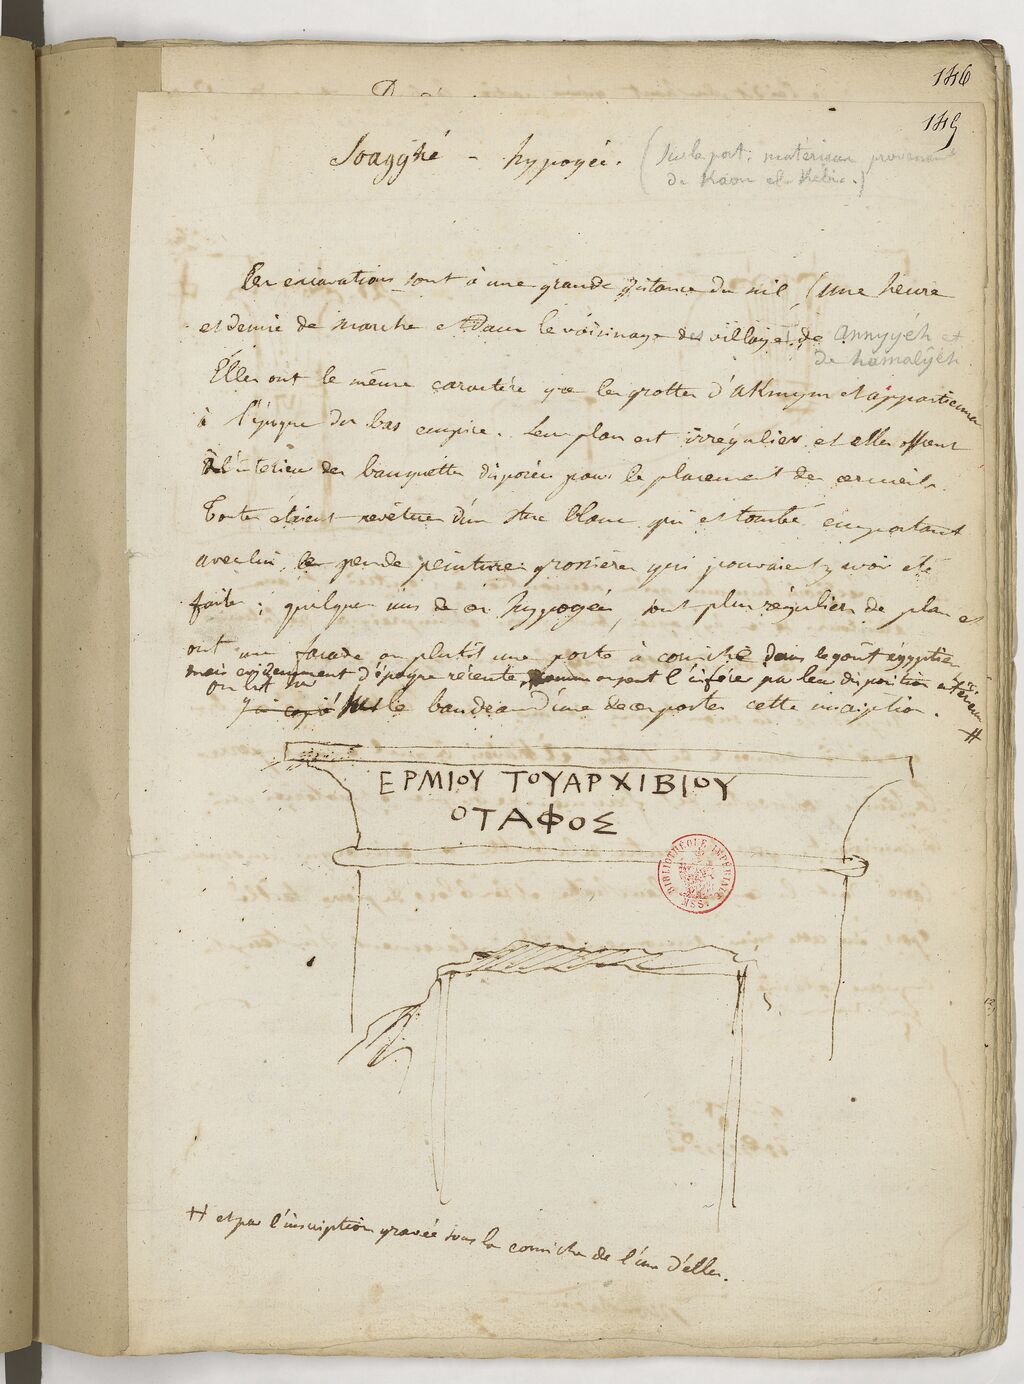 146
149
Soagghé - hypogée. (Sur le port; materiaux provenant
de Kaou el Kebir.)
Les excavations sont à une grande distance du nil, (une heure
et demie de marche et dans le voisinage des villages de annyyéh et
de hamalyéh
Elles ont le même caractère que les grottes d'akmym et appartiennent
à l'époque du bas empire. Leur plan est irrégulier et elles offrent
à l'interieur des banquettes disposées pour le placement des cercueils.
Toutes étaient revêtues d'un stuc blanc qui est tombé emportant
avec lui, le peu de peintures grossières qui pouvaient y avoir été
faites; quelques uns de ces hypogées, sont plus réguliers de plan et
ont une façade ou plutôt une porte à corniche dans le goût égyptien
mais d'époque récente, l'inférer par leur disposition
on lit sur
j'ai copié sur le bandeau d'une de ces portes cette inscription. #
ΕΡΜΙΟΥ ΤΟΥΑΡΧΙΒΙΟΥ
ΟΤΑΦΟΣ
BIBLIOTHÈQUE IMPÉRIALE
MSS.
# et par l'inscription gravée sous la corniche de l'une d'elles.